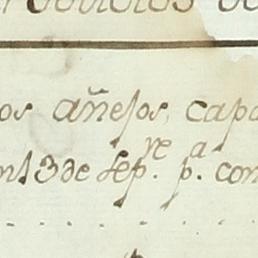 os añejos, capa
en 13 de Sep.re p.a con